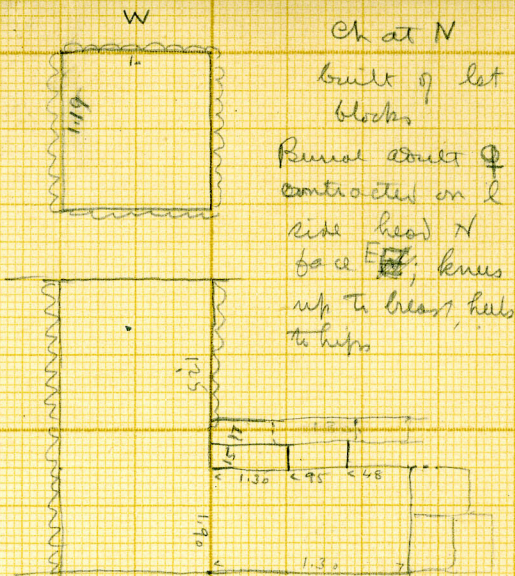 W
Ch at N
built of lst
blocks
Burial adult ♀
contracted on l
side head N
face E; knees
up to breast, heels
to hips
1.
1.19
1.25
17
1.30
15
< 1.30 < 95 < 48
1.90
1.30